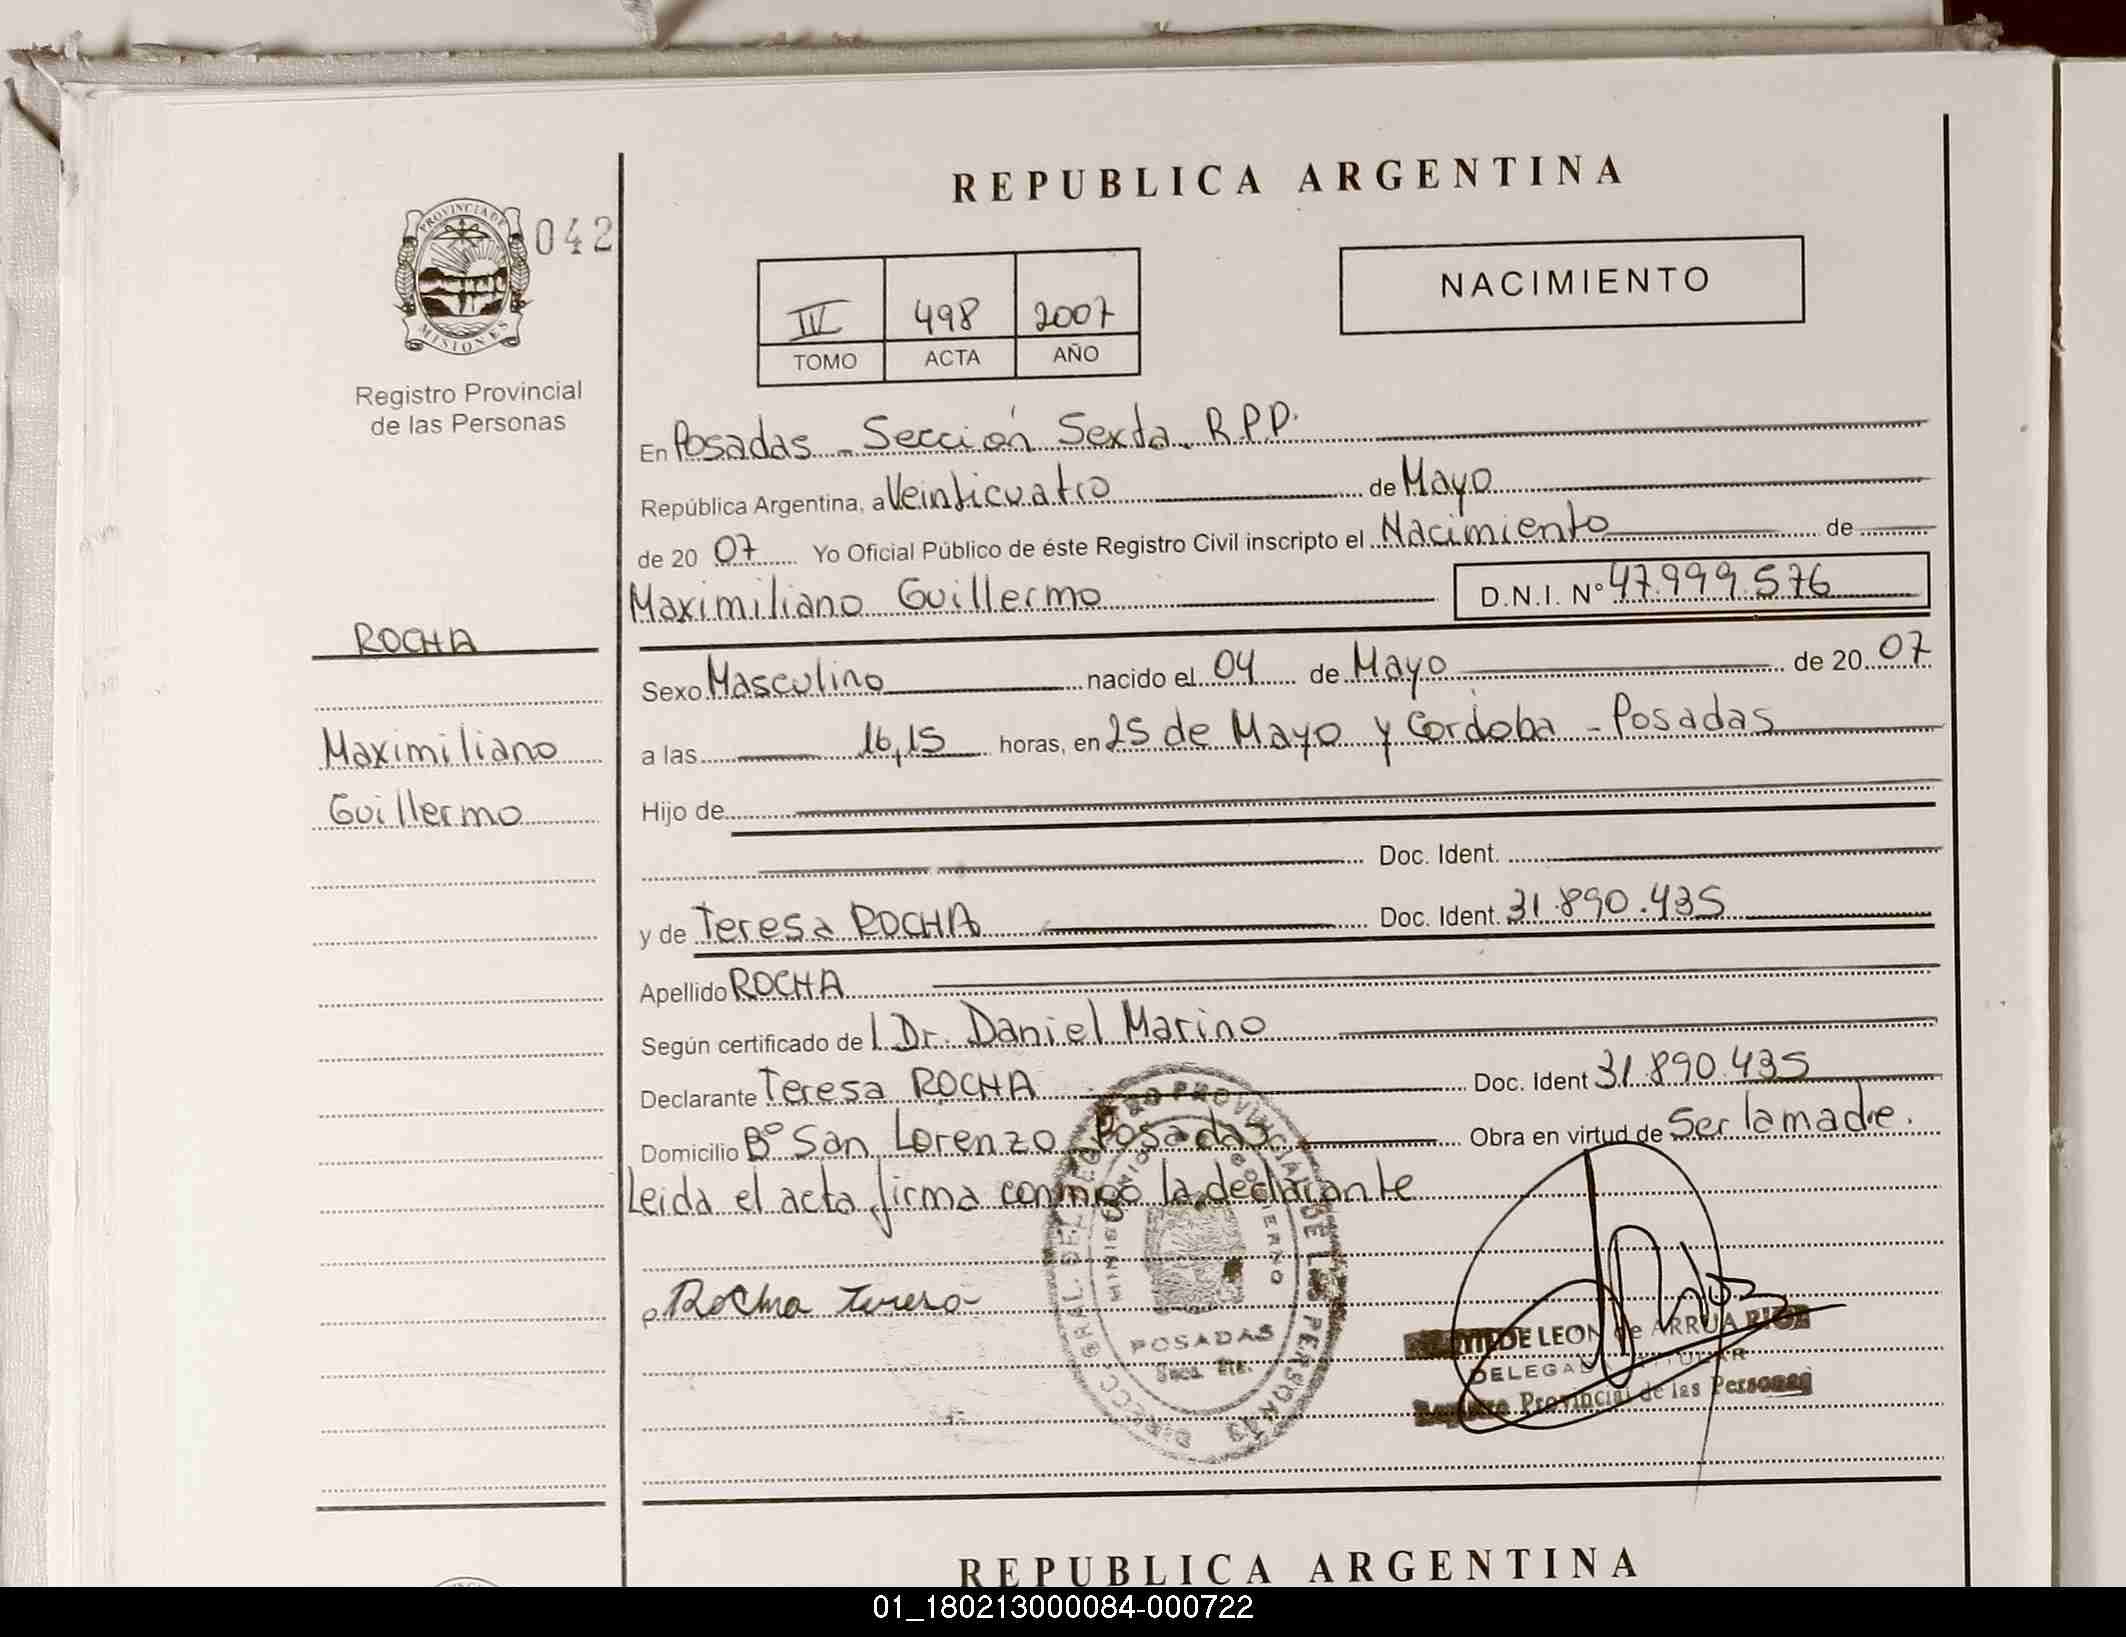 REPUBLICA ARGENTINA
PROVINCIA DE
MISIONES
042
Registro Provincial
de las Personas
NACIMIENTO
IV 498 2007
TOMO ACTA AÑO
ROCHA
Maximiliano
Guillermo
En Posadas - Sección Sexta R.P.P.
República Argentina, a Veinticuatro de Mayo
de 20 07 Yo Oficial Público de éste Registro Civil inscripto el Nacimiento de
Maximiliano Guillermo D.N.I. Nº 47.999.576
Sexo Masculino nacido el 04 de Mayo de 20 07
a las 16,15 horas, en 25 de Mayo y Cordoba - Posadas
Hijo de
Doc. Ident.
y de Teresa ROCHA Doc. Ident. 31.890.435
Apellido ROCHA
Según certificado de l Dr. Daniel Marino
Declarante Teresa ROCHA Doc. Ident 31.890.435
Domicilio Bº San Lorenzo Posadas Obra en virtud de Ser la madre.
Leida el acta firma conmigo la declarante
Rocha Teresa
DIRECC GRAL DEL REGISTRO PROVINCIAL DE LAS PERSONAS
MINISTERIO GOBIERNO
POSADAS
DE LEON de ARRUA
DELEGADA TITULAR
Registro Provincial de las Personas
REPUBLICA ARGENTINA
01_180213000084-000722